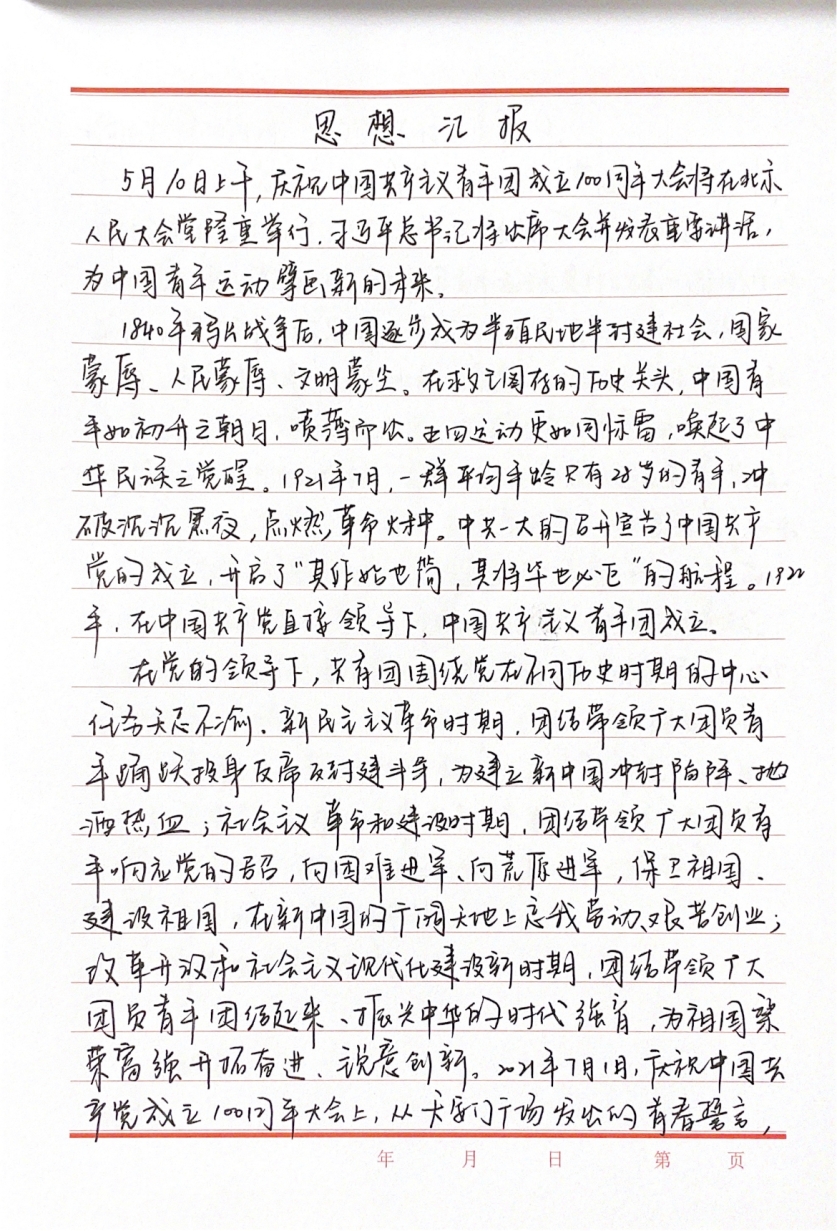 思想汇报
5月10日上午,庆祝中国共产主义青年团成立100周年大会将在北京
人民大会堂隆重举行.习近平总书记将出席大会并发表重要讲话,
为中国青年运动擘画新的未来。
1840年鸦片战争后,中国逐步成为半殖民地半封建社会,国家
蒙辱、人民蒙辱、文明蒙尘。在救亡图存的历史关头,中国青
年如初升之朝日,喷薄而出。五四运动更如同惊雷,唤起了中
华民族之觉醒。1921年7月,一群平均年龄只有28岁的青年,冲
破沉沉黑夜,点燃革命火种。中共一大的召开宣告了中国共产
党的成立,开启了"其作始也简,其将毕也必巨"的航程。1922
年,在中国共产党直接领导下,中国共产主义青年团成立。
在党的领导下,共青团围绕党在不同历史时期的中心
任务矢志不渝.新民主主义革命时期,团结带领广大团员青
年踊跃投身反帝反封建斗争,为建立新中国冲封陷阵、抛
洒热血;社会主义革命和建设时期,团结带领广大团员青
年响应党的号召,向困难进军、向荒原进军,保卫祖国、
建设祖国,在新中国的广阔天地上忘我劳动、艰苦创业;
改革开放和社会主义现代化建设新时期,团结带领广大
团员青年团结起来、振兴中华的时代强音,为祖国繁
荣富强开拓奋进、锐意创新。2021年7月1日,庆祝中国共
产党成立100周年大会上,从天安门广场发出的青春誓言,
年 月 日 第 页